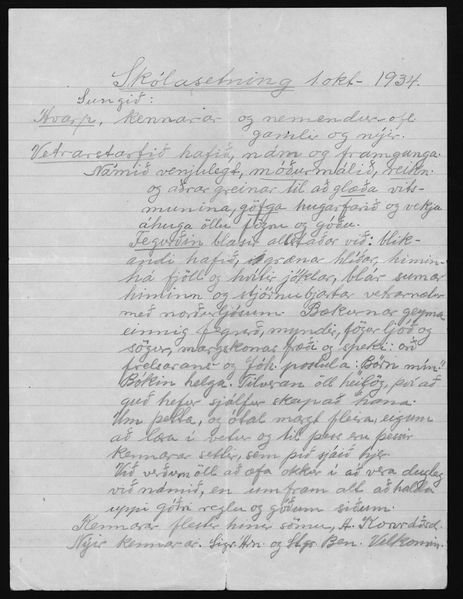 Skólasetning 1 okt- 1934.
Sungið:
Ávarp, kennarar og nemendur
gamlir og nýir.
Vetrarstarfið hafið, nám og framganga.
Námið venjulegt, móðurmálið, reikn.
og aðrar greinar til að glæða vits-
munina, göfga hugarfarið og vekja
áhuga öllu fögru og góðu.
Fegurðin blasir allstaðar við: blik-
andi hafið, græna hlíðar, himin-
há fjöll og hvítir jöklar, blár sumar
himinn og stjörnubjartar vetrarnætur
með norðurljósum Bækurnar geyma
einnig fegurð, myndir, fögur ljóð og
sögur, margskonar fræði og speki: orð
frelsarans og Jóh. postula: Börn mín!
Bókin helga. Tilveran öll heilög, því að
guð hefur sjálfur skapað hana.
Um þetta, og ótal margt fleira, eigum
að læra í vetur og til þess eru þessir
kennarar settir, sem þið sjáið hjer
Við verðum öll að æfa okkur í að vera dugleg
við námið, en um fram alt að halda
uppi góðri reglu og góðum siðum.
Kennarar flestir hinir sömu, H.
Nýir kennarar. Sigr. og Ben. Velkomin.